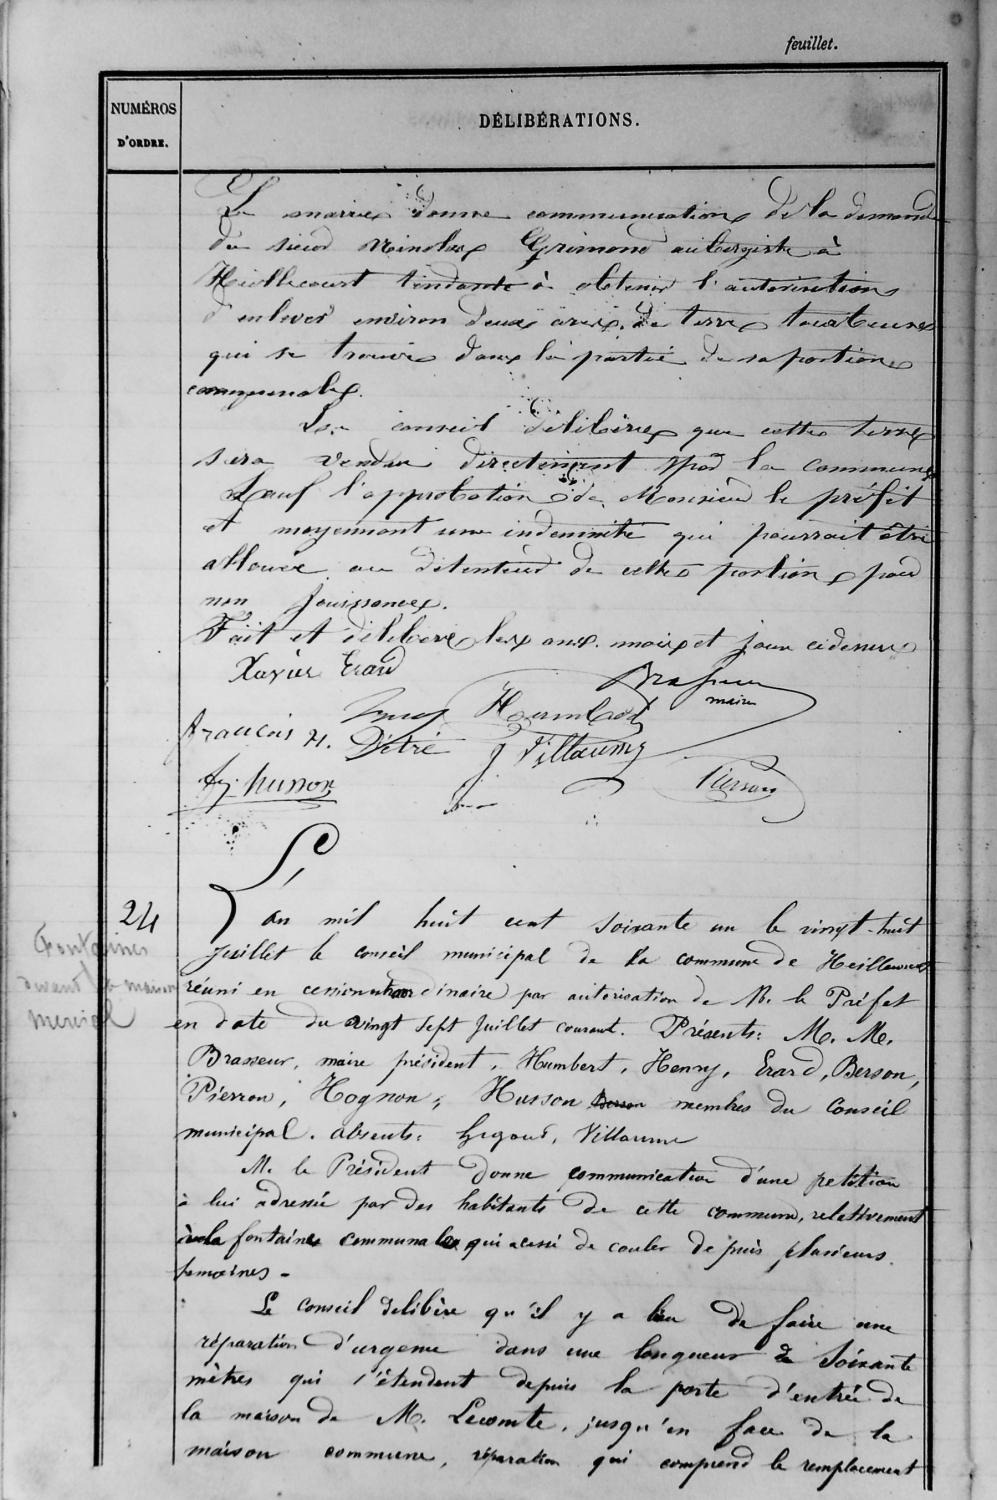 feuillet.
NUMÉROS
D'ORDRE.
DÉLIBÉRATIONS.
Le maire donne communication de la demande
du sieur Nicolas Grimond aubergiste à
Heillecourt tendante à obtenir l'autorisation
d'enlever environ deux ares de terre
qui se trouve dans la partie de sa portion
communale.
Le conseil délibère que cette terre
sera vendue directement par la commune
sauf l'approbation de Monsieur le préfet
et moyennant une indemnité qui pourrait être
allouée au détenteur de cette portion pour
non jouissance.
Fait et délibéré les an, mois et jour cidessus
Xavier Erard
Brasseur
maire
Humbert
françois H. Détré
J Villaume
Husson
Pierson
24
Fontaines
devant la maison
L'an mil huit cent soixante un le vingt-huit
Juillet le conseil municipal de la commune de Heillecourt
réuni en cession extraordinaire par autorisation de M. le Préfet
en date du vingt sept Juillet courant. Présents: M. M.
Brasseur, maire président, Humbert, Henry, Erard, Berson,
Pierron, Hognon, Husson Berson membres du Conseil
municipal. absents: Gegout, Villaume
M. le Président donne communication d'une petition
à lui adressée par des habitants de cette commune, relativement
à la fontaine communale qui a cessé de couler depuis plusieurs
semaines -
Le conseil délibère qu'il y a lieu de faire une
réparation d'urgence dans une longueur de Soixante
mètres qui s'étendent depuis la porte d'entrée de
la maison de M. Lecomte, jusqu'en face de la
maison commune, réparation qui comprend le remplacement